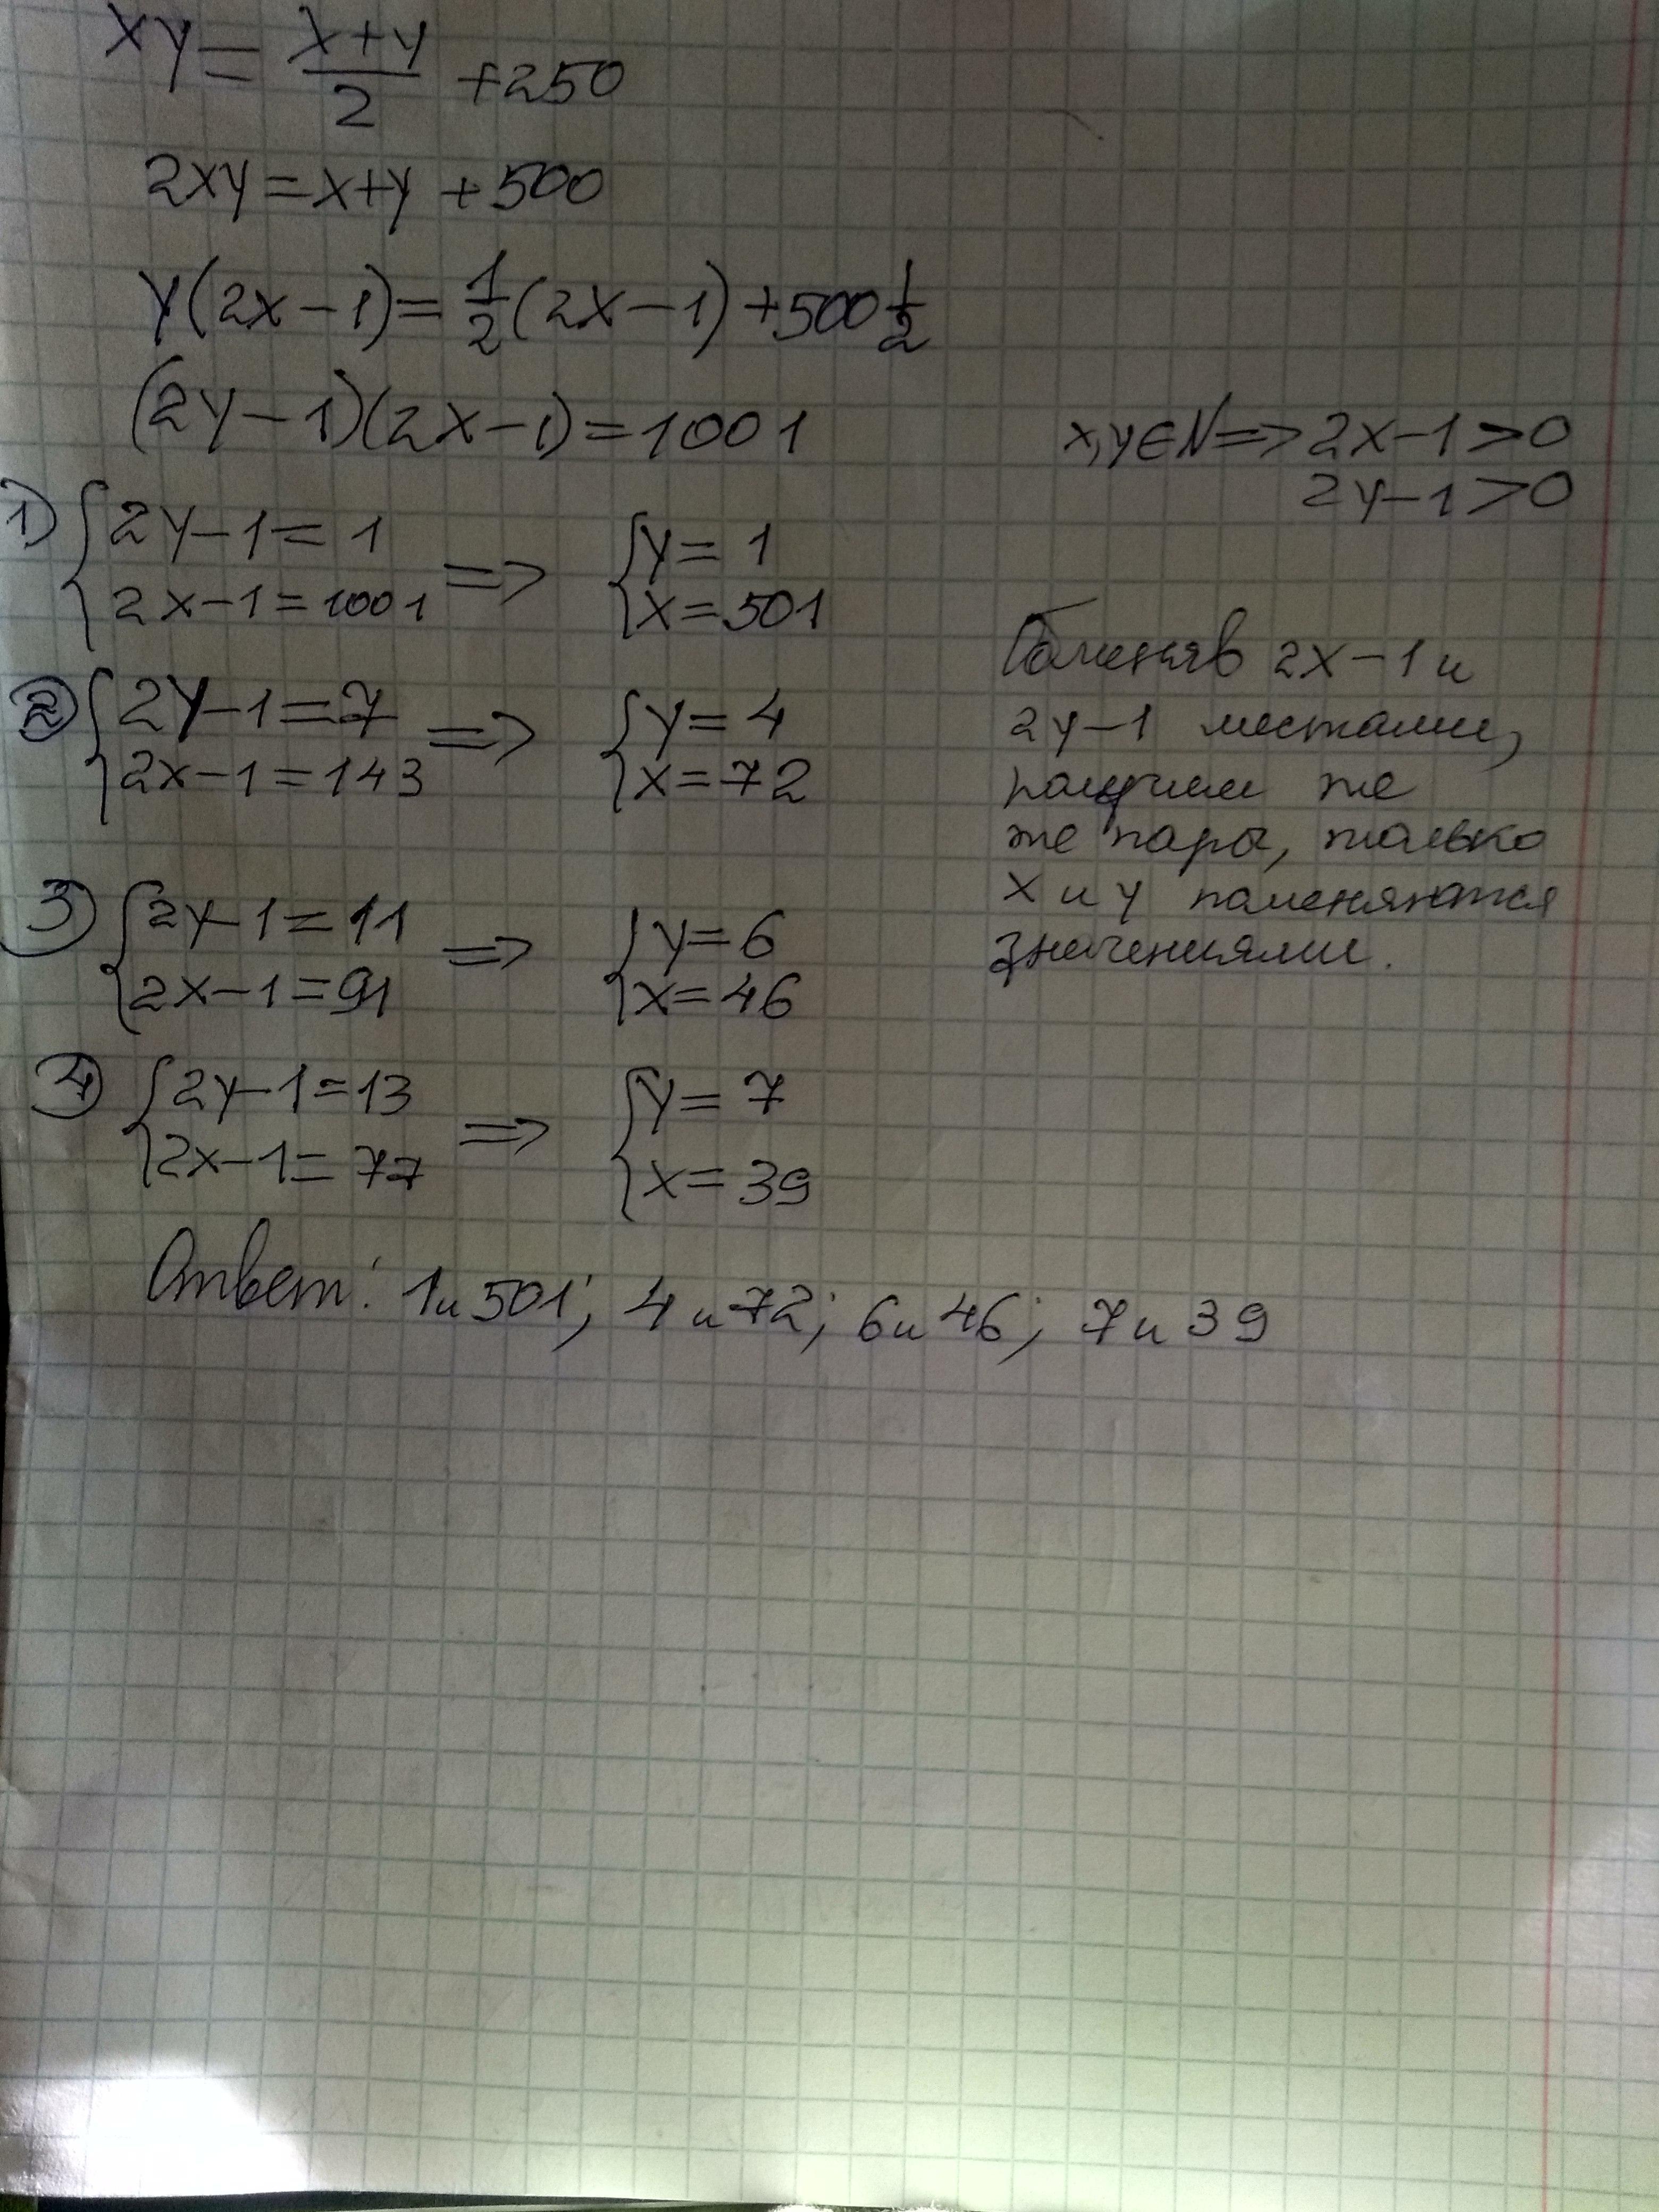 xy = (x+y)/2 + 250
2xy = x+y + 500
y(2x-1) = 1/2(2x-1) + 500 1/2
(2y-1)(2x-1) = 1001
x, y ∈ N => 2x-1 > 0
2y-1 > 0
1) { 2y-1 = 1
2x-1 = 1001 => { y = 1
x = 501
2) { 2y-1 = 7
2x-1 = 143 => { y = 4
x = 72
3) { 2y-1 = 11
2x-1 = 91 => { y = 6
x = 46
4) { 2y-1 = 13
2x-1 = 77 => { y = 7
x = 39
Поменяв 2x-1 и
2y-1 местами,
получим те
же пары, только
x и y поменяются
значениями.
Ответ: 1 и 501; 4 и 72; 6 и 46; 7 и 39